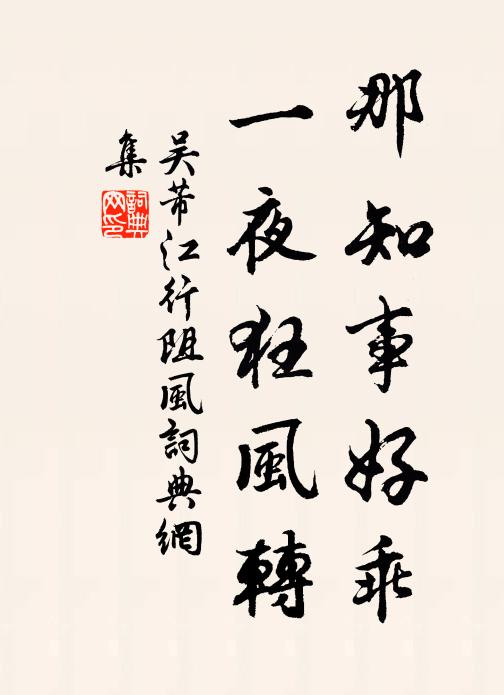 那知事好乖
一夜狂風轉
吴芾江行阻風詞典網
集
詞典
网印